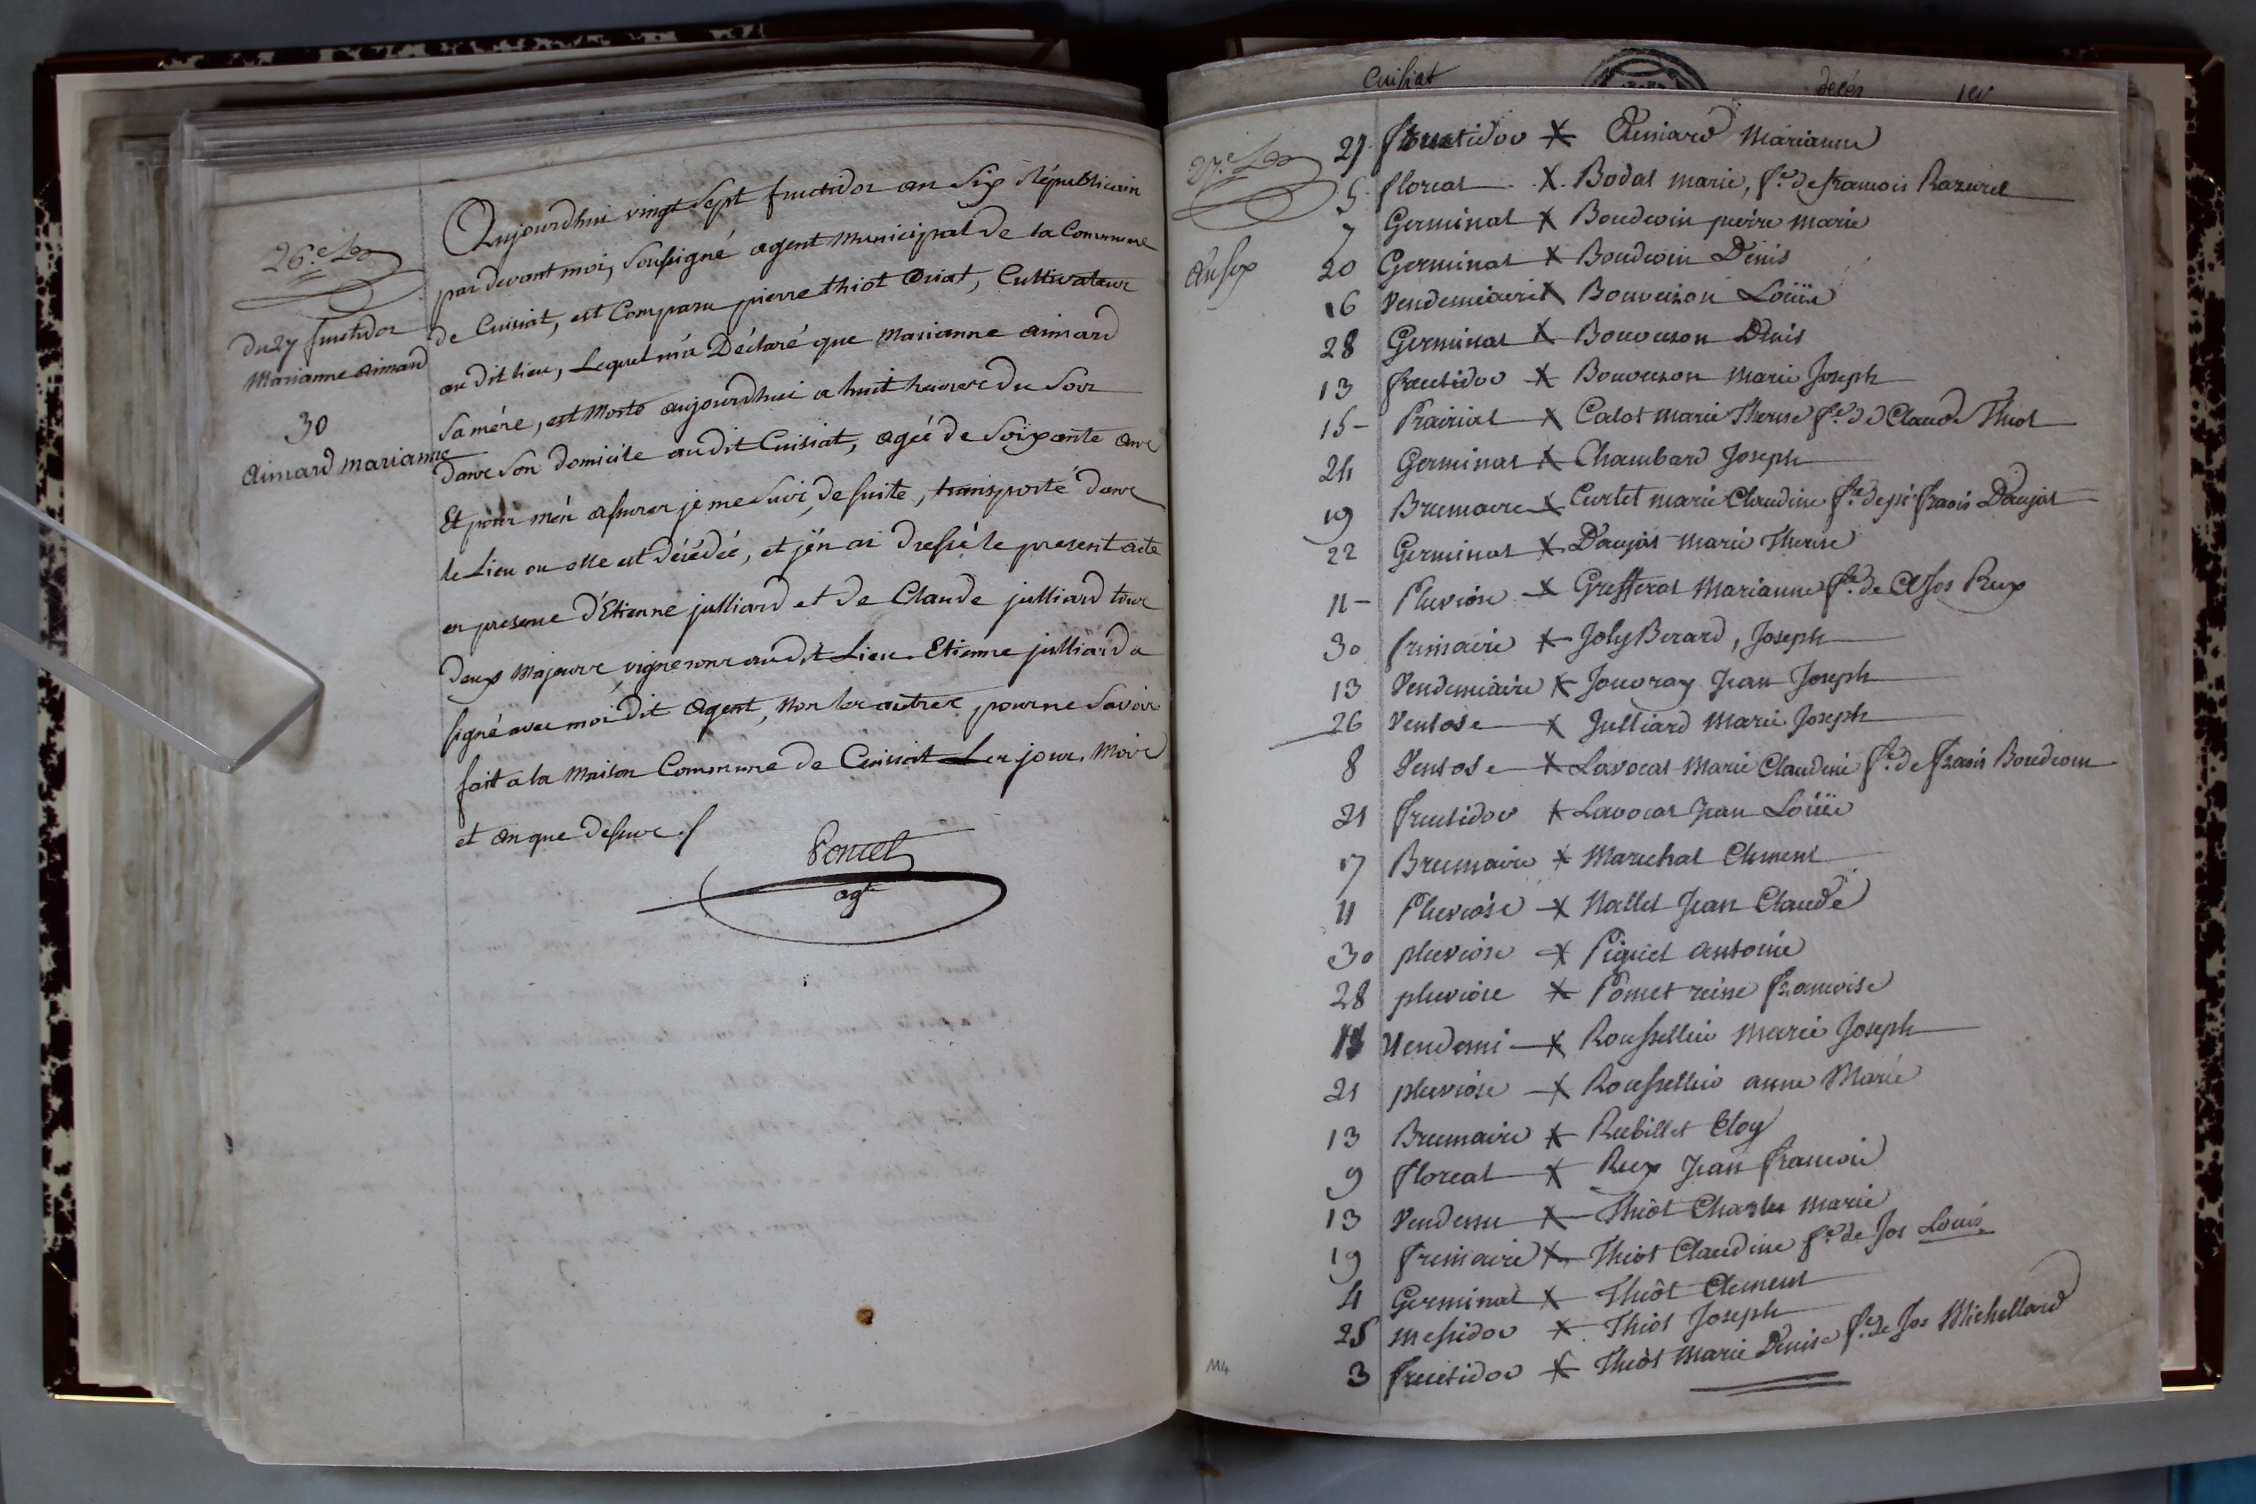 26.e
du 27 fructidor
Marianne aimard
30
aimard marianne
Aujourdhui vingt Sept fructidor an Six Républicain
par devant moi, Soussigné agent Municipal de la Commune
de Cuisiat, est Comparu pierre thiot Oriat, Cultivateur
au dit lieu, Lequel m'a Déclaré que Marianne aimard
Sa mére, est Morte aujourdhui a huit heures du Soir
dans Son domicile au dit Cuisiat, agée de Soixante ans
Et pour m'en assurer je me Suis, de suite, transporté dans
le Lieu ou elle est décédée, et j'en ai dressé le present acte
en presence d'Etienne julliard et de Claude julliard tous
deux Majeurs, vignerons au dit Lieu. Etienne julliard a
signé avec moi dit agent, Non les autres pour ne Savoir
fait a la Maison Commune de Cuisiat Les jour, Mois
et an que dessus ./
Poncet
agt
Cuisiat
27.e
an six
27 fructidor X Aimard Marianne
5 floreal X Bodat marie, fe. de francois Razurel
7 Germinal X Boudouin pierre marie
20 Germinal X Boudouin Denis
16 Vendemiaire X Bouveison Loüis
28 Germinal X Bouveison Denis
13 fructidor X Bouveison Marie Joseph
15 - Prairial X Calot marie Therese fe. de Claude Thiot
24 Germinal X Chambard Joseph
19 Brumaire X Curlet marie Claudine fe. de pre. fraois Daujat
22 Germinal X Daujat Marie Therese
11 - Pluviôse X Grefferat Marianne fe. de Cl Jos Rux
30 frimaire X Joly Berard, Joseph
13 Vendemiaire X Jouvray Jean Joseph
26 Ventose X Julliard Marie Joseph
8 Ventose X Lavocat Marie Claudine fe. de fraois Boudouin
21 fructidor X Lavocat Jean Loüis
17 Brumaire X Marechal Clement
11 Pluviôse X Nallet Jean Claude
30 pluviôse X Piquet antoine
28 pluviôse X Poncet reine francoise
Vendemi X Rousselliu Marie Joseph
21 pluviôse X Rousselliu anne Marie
13 Brumaire X Rubillet Eloy
9 floreal X Rux Jean francois
13 Vendem X Thiôt Charles Marie
19 frimaire X Thiot Claudine fe. de Jos Louis
4 Germinal X Thiôt Clement
25 messidor X Thiot Joseph
3 fructidor X Thiôt Marie Denise fe. de Jos Michellard
114